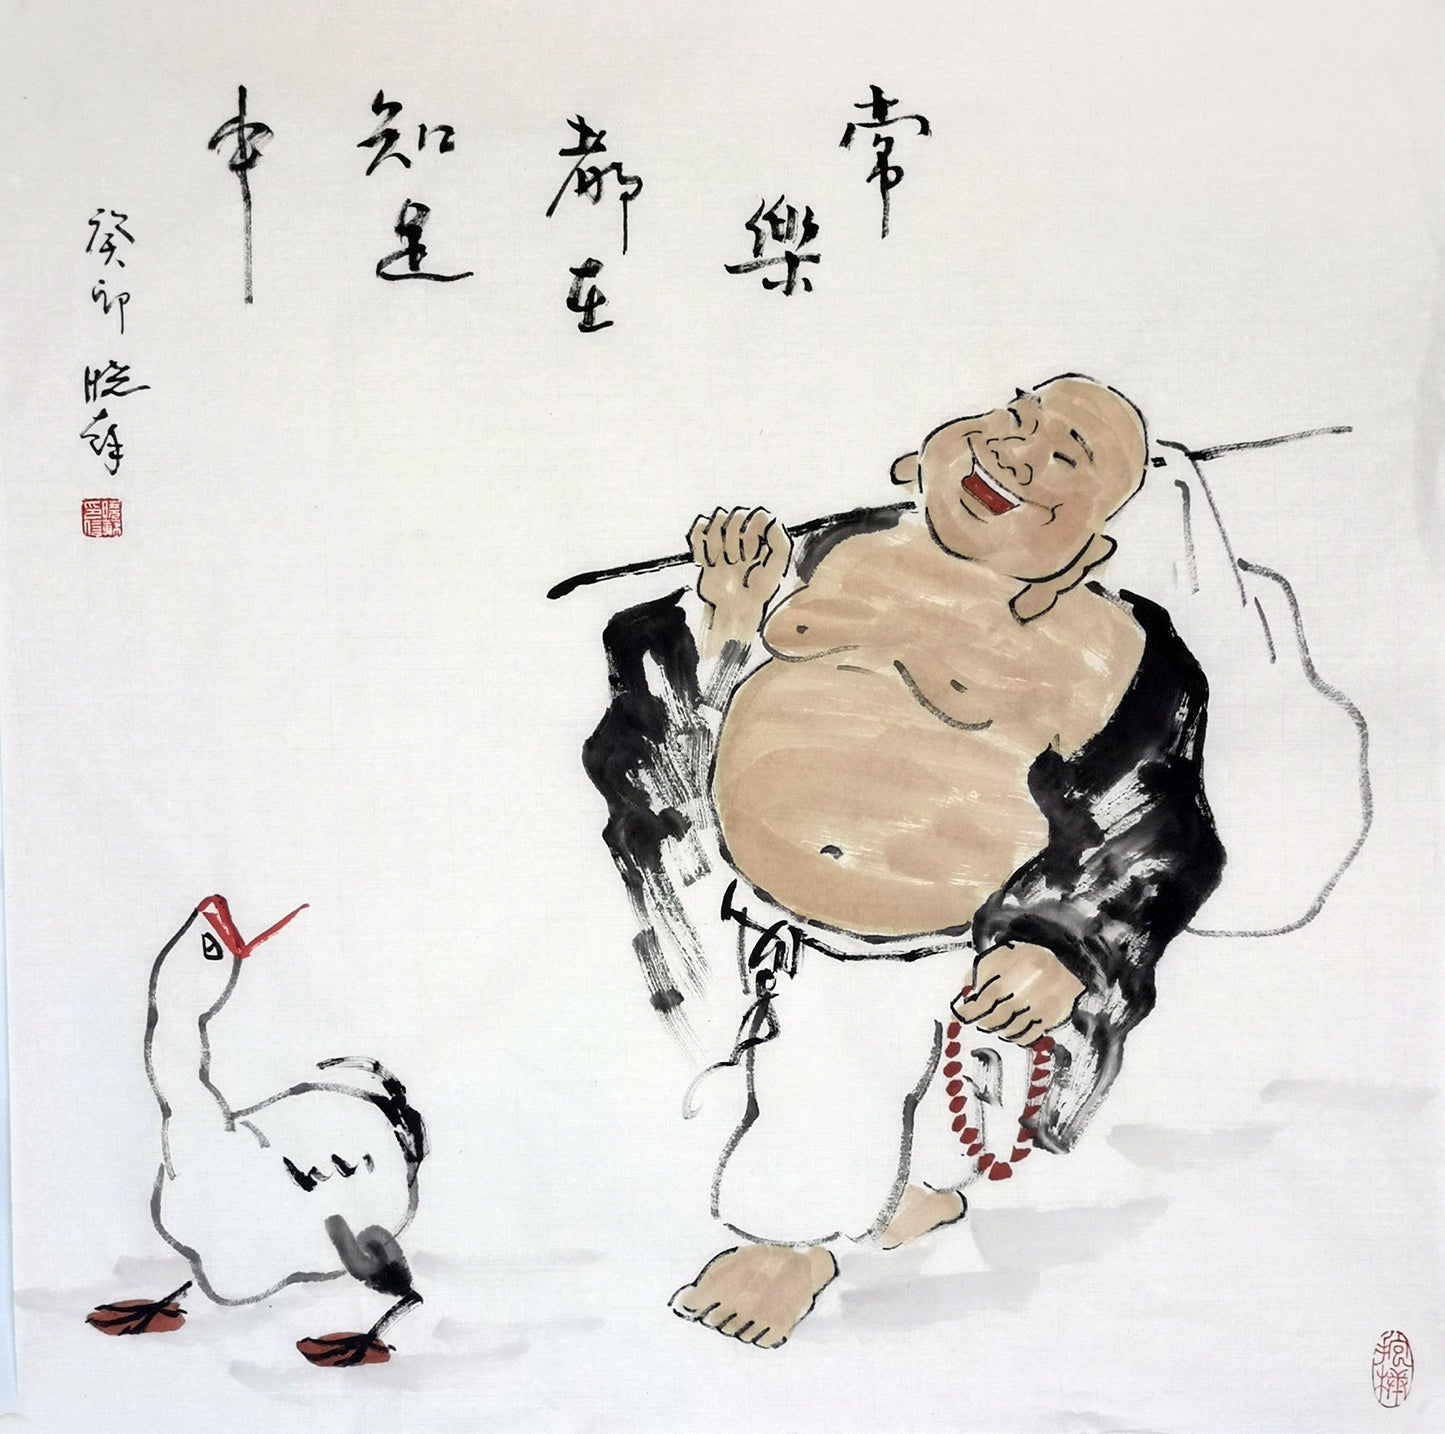 常樂
都在
知足
中
癸卯 晓